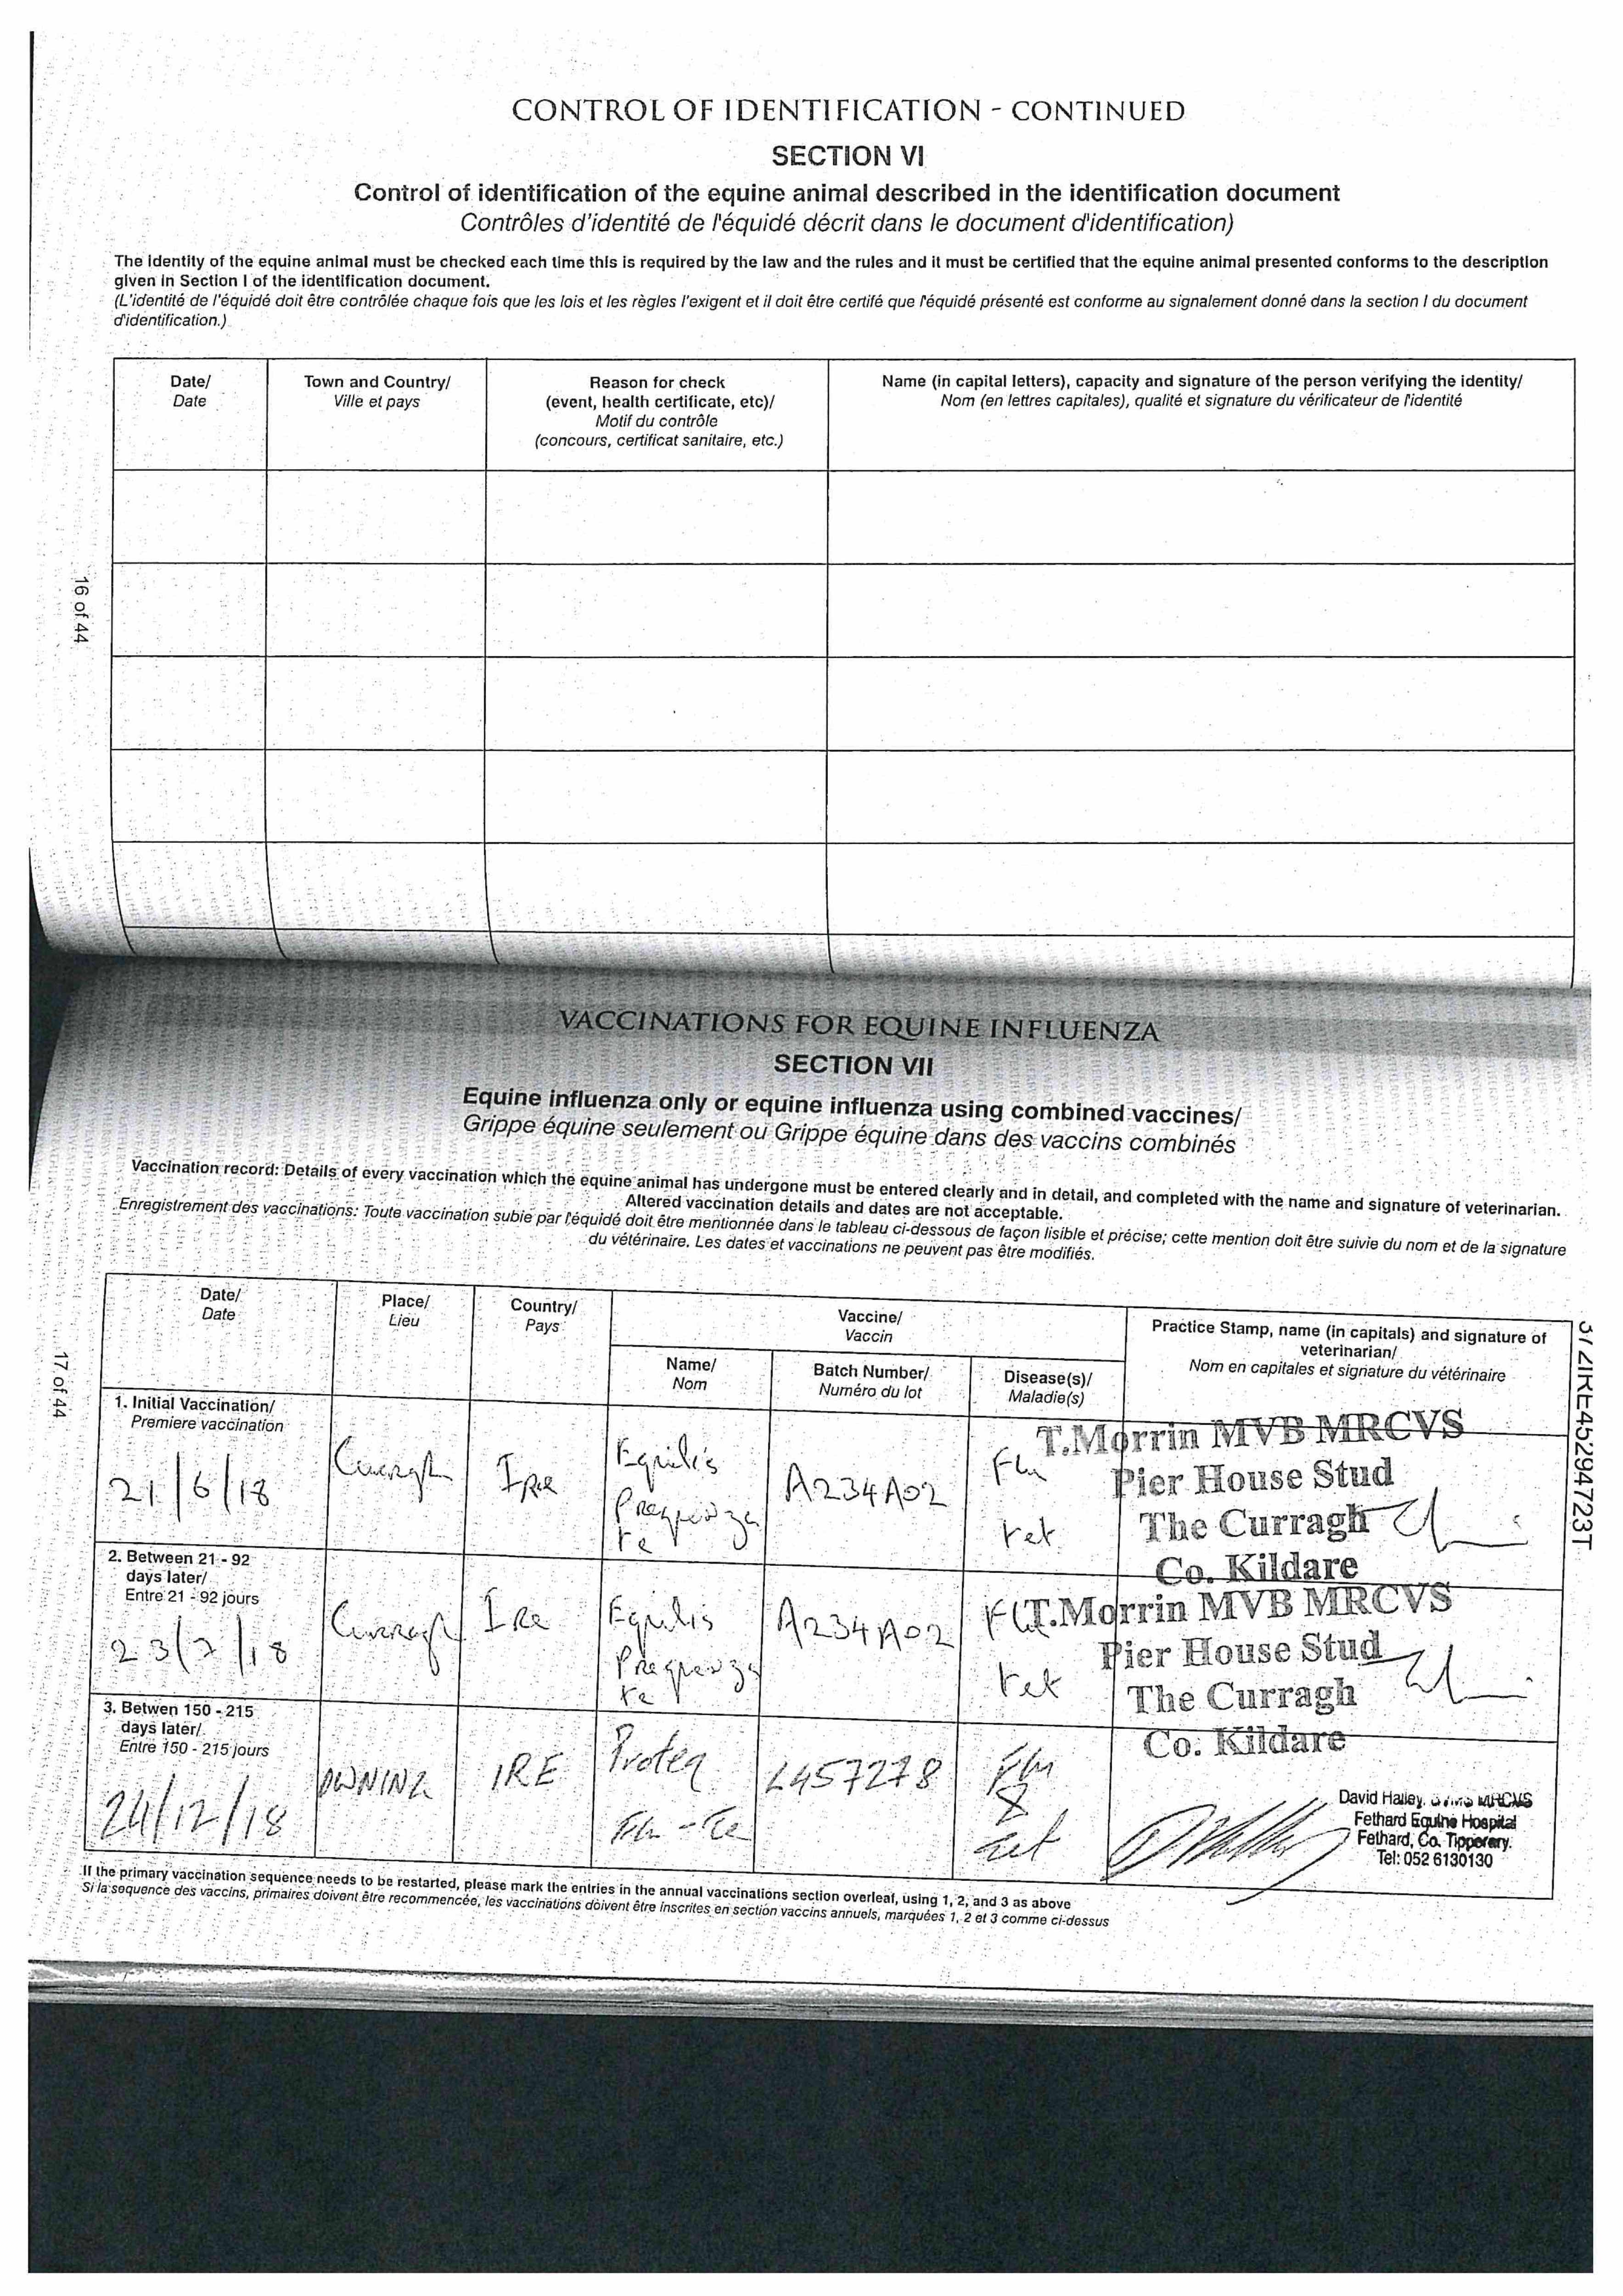 CONTROL OF IDENTIFICATION - CONTINUED
SECTION VI
Control of identification of the equine animal described in the identification document
Contrôles d'identité de l'équidé décrit dans le document d'identification)
The identity of the equine animal must be checked each time this is required by the law and the rules and it must be certified that the equine animal presented conforms to the description
given in Section I of the identification document.
(L'identité de l'équidé doit être contrôlée chaque fois que les lois et les règles l'exigent et il doit être certifé que l'équidé présenté est conforme au signalement donné dans la section I du document
d'identification.)
Date/
Date
Town and Country/
Ville et pays
Reason for check
(event, health certificate, etc)/
Motif du contrôle
(concours, certificat sanitaire, etc.)
Name (in capital letters), capacity and signature of the person verifying the identity/
Nom (en lettres capitales), qualité et signature du vérificateur de l'identité
16 of 44
VACCINATIONS FOR EQUINE INFLUENZA
SECTION VII
Equine influenza only or equine influenza using combined vaccines/
Grippe équine seulement ou Grippe équine dans des vaccins combinés
Vaccination record: Details of every vaccination which the equine animal has undergone must be entered clearly and in detail, and completed with the name and signature of veterinarian.
Altered vaccination details and dates are not acceptable.
Enregistrement des vaccinations: Toute vaccination subie par l'équidé doit être mentionnée dans le tableau ci-dessous de façon lisible et précise; cette mention doit être suivie du nom et de la signature
du vétérinaire. Les dates et vaccinations ne peuvent pas être modifiés.
Date/
Date
Place/
Lieu
Country/
Pays
Vaccine/
Vaccin
Name/
Nom
Batch Number/
Numéro du lot
Disease(s)/
Maladie(s)
Practice Stamp, name (in capitals) and signature of
veterinarian/
Nom en capitales et signature du vétérinaire
17 of 44
372IRE45294723T
1. Initial Vaccination/
Premiere vaccination
21/6/18
Curragh
Ire
Equilis
Prequenza
te
A234A02
Flu
tet
T.Morrin MVB MRCVS
Pier House Stud
The Curragh
Co. Kildare
2. Between 21 - 92
days later/
Entre 21 - 92 jours
23/7/18
Curragh
Ire
Equilis
Prequenza
te
A234A02
Flu
tet
T.Morrin MVB MRCVS
Pier House Stud
The Curragh
Co. Kildare
3. Betwen 150 - 215
days later/
Entre 150 - 215 jours
24/12/18
OWNING
IRE
Proteq
Flu - Te
L457278
Flu
&
tet
David Halley. MRCVS
Fethard Equine Hospital
Fethard, Co. Tipperary.
Tel: 052 6130130
If the primary vaccination sequence needs to be restarted, please mark the entries in the annual vaccinations section overleaf, using 1, 2, and 3 as above
Si la sequence des vaccins, primaires doivent être recommencée, les vaccinations doivent être inscrites en section vaccins annuels, marquées 1, 2 et 3 comme ci-dessus